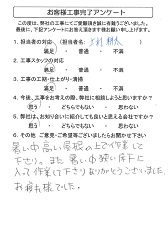 お客様工事完了アンケート
この度は、弊社の工事にてご愛顧頂き誠に有難うございました。
最後に、下記アンケートにお答え頂きます様お願い申し上げます。
1. 担当者の対応 (担当者名:
満足 ・ 普通 ・ 不満
2. 工事スタッフの対応
満足 ・ 普通 ・ 不満
3. 工事の工期・仕上がり・清掃
満足 ・ 普通 ・ 不満
4. 今後、工事をお考えの際、弊社に相談しようと思いますか?
思う ・ どちらでもない ・ 思わない
5. 弊社は、お知り合いに紹介しても良いと思える会社ですか?
思う ・ どちらでもない ・ 思わない
6. その他、ご意見・ご希望等ございましたらお聞かせ下さい
暑い中高い屋根の上で作業して
下さり。また暑い中狭い床下に
入って作業して下さりありがとうございました。
お疲れ様でした。